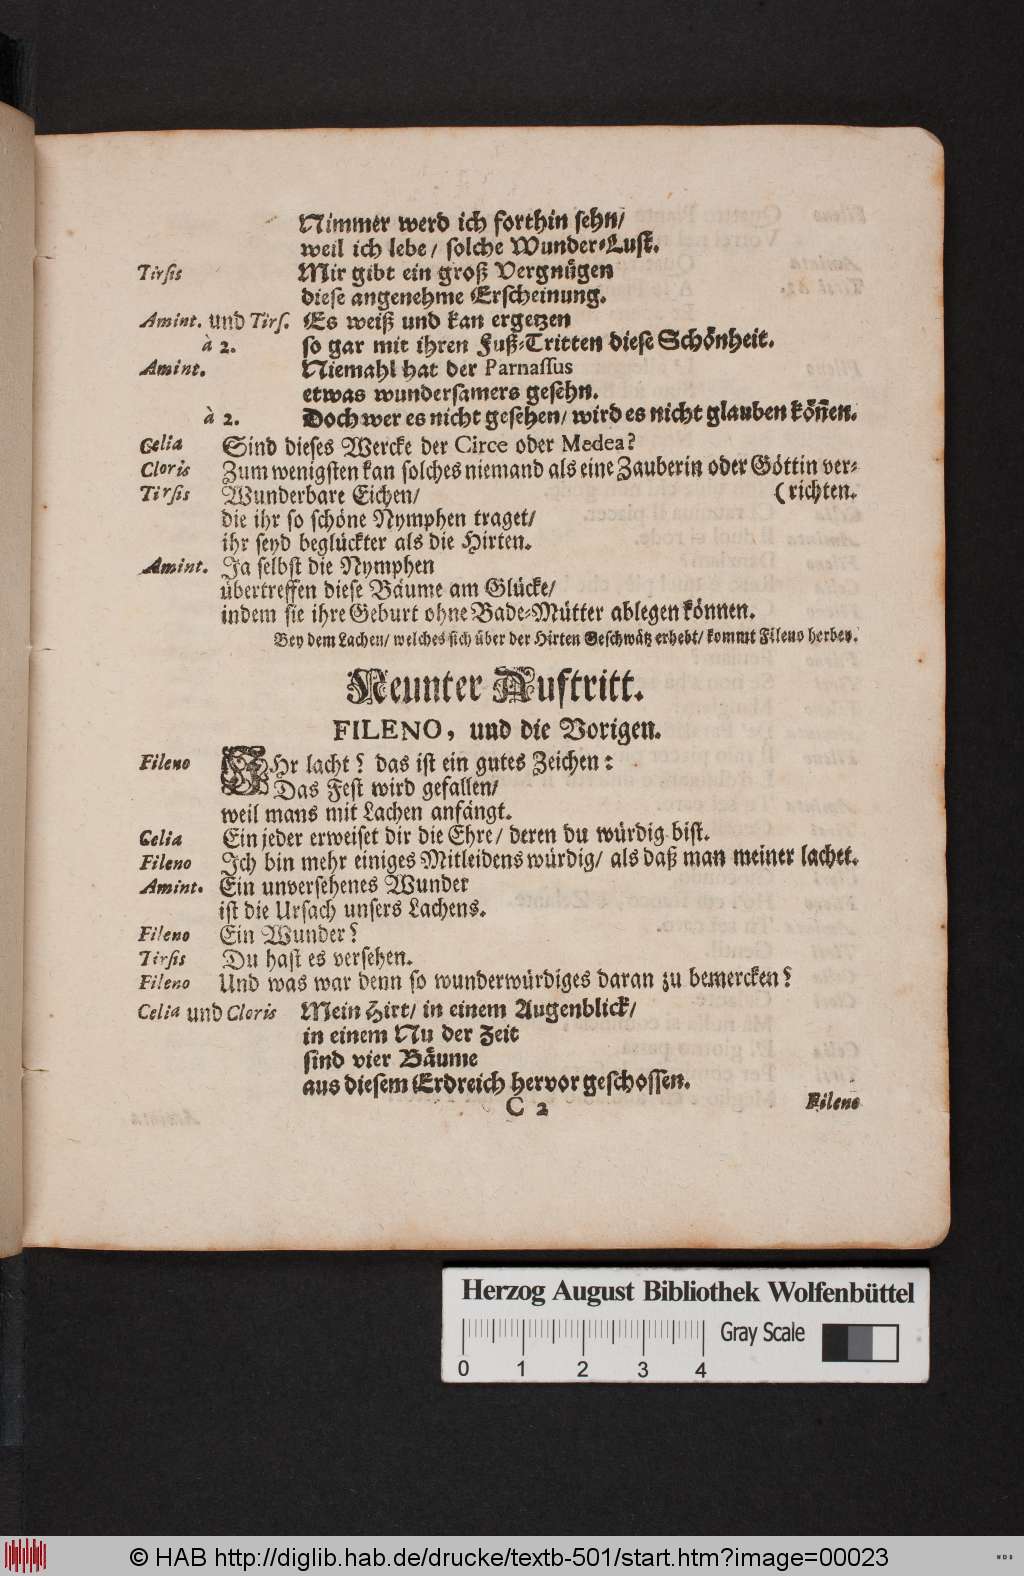 Nimmer werd ich forthin sehn/
weil ich lebe/ solche Wunder-Lust.
Tirsis Mir gibt ein groß Vergnügen
diese angenehme Erscheinung.
Amint. und Tirs. Es weiß und kan ergetzen
à 2. so gar mit ihren Fuß-Tritten diese Schönheit.
Amint. Niemahl hat der Parnassus
etwas wundersamers gesehn.
à 2. Doch wer es nicht gesehen/ wird es nicht glauben köñen.
Celia Sind dieses Wercke der Circe oder Medea?
Cloris Zum wenigsten kan solches niemand als eine Zauberin oder Göttin ver-
Tirsis Wunderbare Eichen/ (richten.
die ihr so schöne Nymphen traget/
ihr seyd beglückter als die Hirten.
Amint. Ja selbst die Nymphen
übertreffen diese Bäume am Glücke/
indem sie ihre Geburt ohne Bade-Mütter ablegen können.
Bey dem Lachen/ welches sich über der Hirten Geschwätz erhebt/ kommt Fileno herbey.
Neunter Auftritt.
FILENO, und die Vorigen.
Fileno IHr lacht? das ist ein gutes Zeichen:
Das Fest wird gefallen/
weil mans mit Lachen anfängt.
Celia Ein jeder erweiset dir die Ehre/ deren du würdig bist.
Fileno Ich bin mehr einiges Mitleidens würdig/ als daß man meiner lachet.
Amint. Ein unversehenes Wunder
ist die Ursach unsers Lachens.
Fileno Ein Wunder?
Tirsis Du hast es versehen.
Fileno Und was war denn so wunderwürdiges daran zu bemercken?
Celia und Cloris Mein Hirt/ in einem Augenblick/
in einem Nu der Zeit
sind vier Bäume
aus diesem Erdreich hervor geschossen.
C 2 Fileno
Herzog August Bibliothek Wolfenbüttel
Gray Scale
0 1 2 3 4
© HAB http://diglib.hab.de/drucke/textb-501/start.htm?image=00023